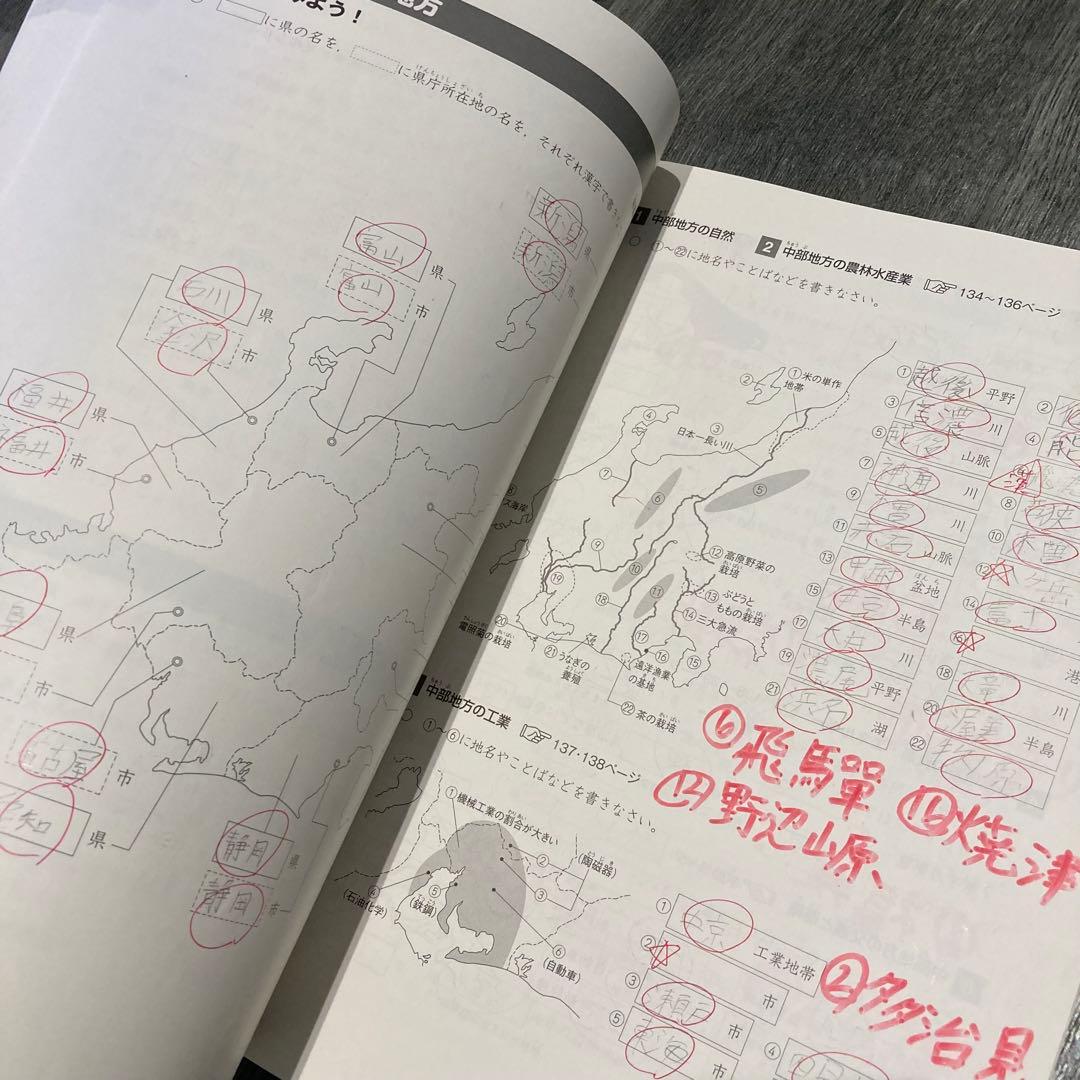 地方
よう！
に県の名を，
に県庁所在地の名を，それぞれ漢字で書き
新潟
県
新潟
市
富山
県
富山
市
石川
県
金沢
市
福井
県
福井
市
県
市
古屋
市
愛知
県
静岡
県
静岡
市
1 中部地方の自然
2 中部地方の農林水産業 134～136ページ
①～㉒に地名やことばなどを書きなさい。
①米の単作
地帯
②
③
日本一長い川
④
⑤
⑥
⑦
⑧
ス海岸
⑨
⑩
⑪
⑫高原野菜の
栽培
⑬ぶどうと
ももの栽培
⑭三大急流
⑮
⑯
遠洋漁業
の基地
⑰
⑱
⑲
⑳
電照菊の栽培
㉑うなぎの
養殖
㉒茶の栽培
① 越後 平野
②
③ 信濃 川
④ 能
⑤ 越後 山脈
⑦ 神通 川
⑧ 若狭
⑨ 木曽 川
⑩ 木曽
⑪ 赤石 山脈
⑫ ヶ岳
⑬ 甲府 盆地
⑭ 富士
⑮ 伊豆 半島
⑯ 港
⑰ 大井 川
⑱ 竜 川
⑲ 濃尾 平野
⑳ 渥美 半島
㉑ 浜名 湖
㉒ 牧ノ原
⑥飛馬單
⑫野辺山原
⑯焼津
中部地方の工業 137・138ページ
①～⑥に地名やことばなどを書きなさい。
①機械工業の割合が大きい
②
(陶磁器)
③
④
(石油化学)
⑤
(鉄鋼)
⑥
(自動車)
① 中京 工業地帯
② 市
③ 瀬戸 市
④ 四日市
⑤ 東海 市
②多治見